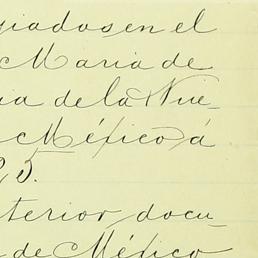 en el
Maria de
de la Nue-
México á
5.
terior, docu-
de México